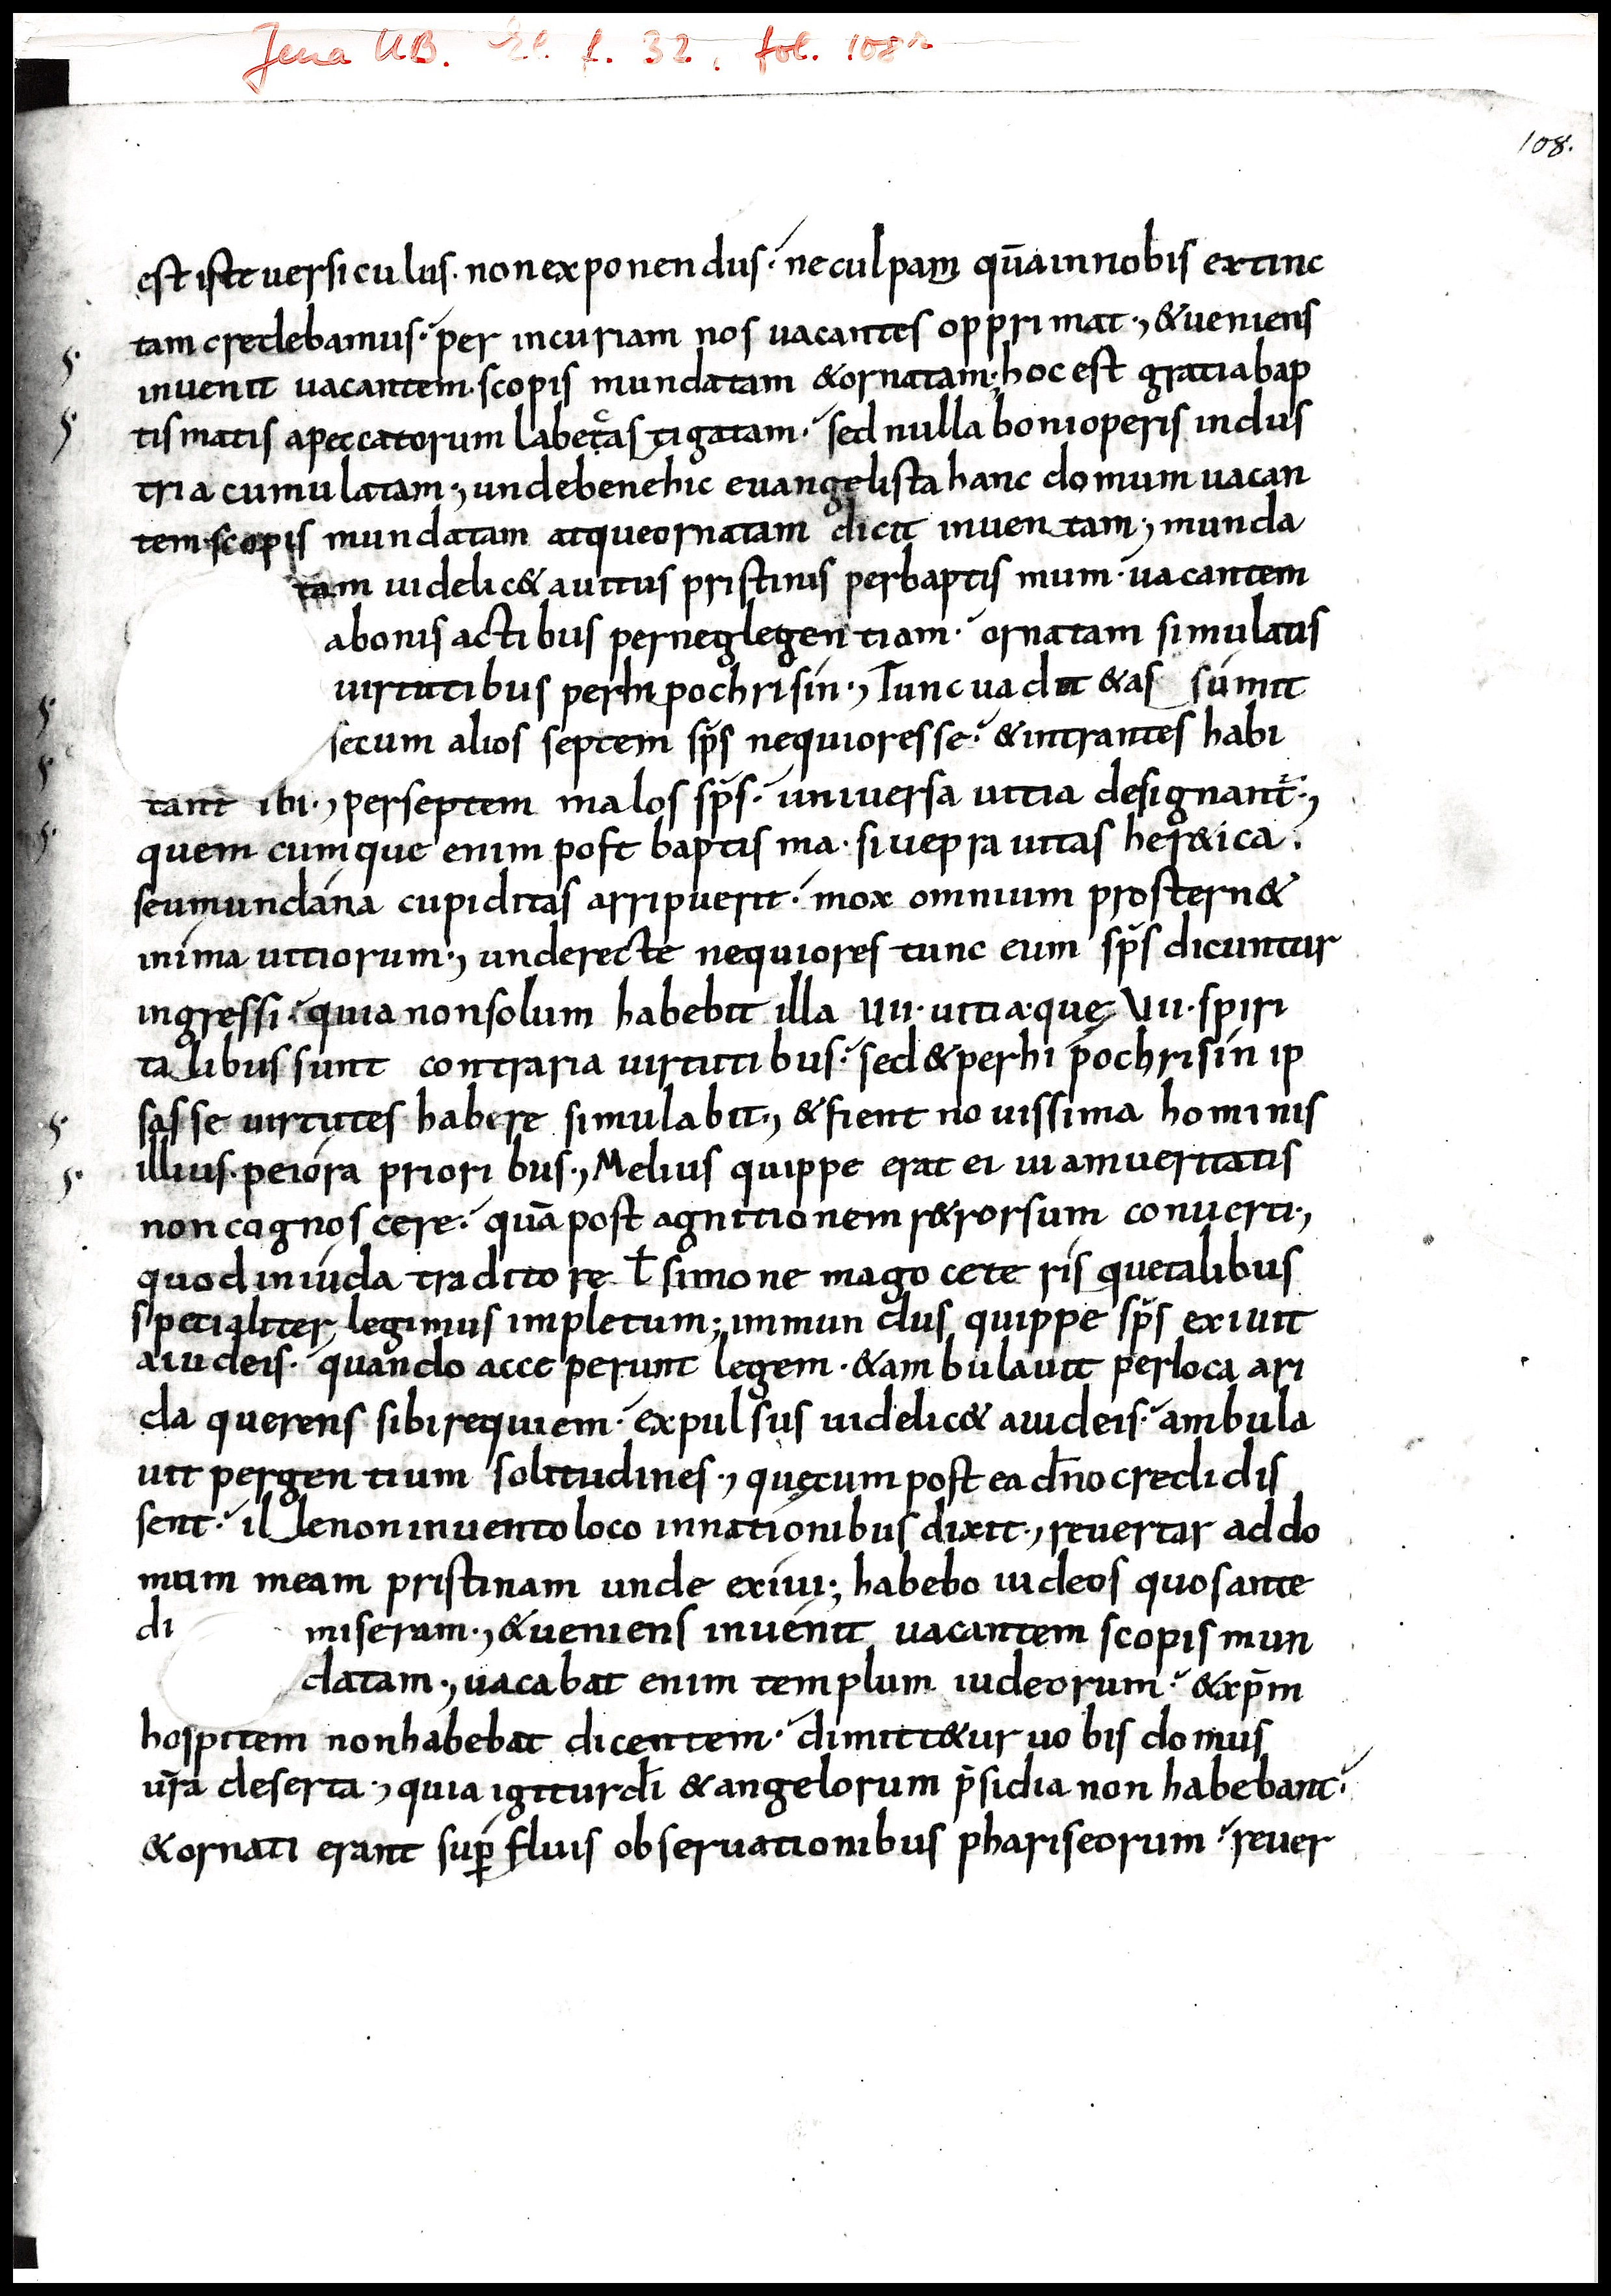 Jena UB. El. f. 32. fol. 108r
108.
est iste uersiculus. non exponendus. ne culpam qua̅ in nobis extinc
tam credebamus. per incuriam nos uacantes opprimat., & ueniens
inuenit uacantem. scopis mundatam & ornatam; hoc est gratia bap
tismatis a peccatorum labe castigatam. sed nulla boni operis indus
tria cumulatam., unde bene hic euangelista hanc domum uacan
tem. scopis mundatam atque ornatam dicit inuentam., munda
tam uidelic& a uitiis pristinis per baptismum. uacantem
a bonis actibus per neglegentiam. ornatam simulatis
uirtutibus per hipochrisin., Tunc uadit & assumit
secum alios septem sp̅s nequiores se. & intrantes habi
tant ibi., per septem malos sp̅s. uniuersa uitia designant̅.,
quemcumque enim post baptisma. siue prauitas her&ica.
seu mundana cupiditas arripuerit. mox omnium prostern&
in ima uitiorum., unde recte nequiores tunc eum sp̅s dicuntur
ingressi. quia non solum habebit illa UII. uitia. quę UII. spiri
talibus sunt contraria uirtutibus. sed & per hipochrisin ip
sas se uirtutes habere simulabit., & fient nouissima hominis
illius. peiora prioribus., Melius quippe erat ei uiam ueritatis
non cognoscere. qua̅ post agnitionem r&rorsum conuerti.,
quod in iuda traditore ł simone mago ceterisque talibus
specialiter legimus impletum; immundus quippe sp̅s exiuit
a iudeis. quando acceperunt legem. & ambulauit per loca ari
da querens sibi requiem. expulsus uidelic& a iudeis. ambula
uit per gentium solitudines., quę cum postea dn̅o credidis
sent. ille non inuento loco in nationibus dixit., reuertar ad do
mum meam pristinam unde exiui; habebo iudeos quos ante
di miseram., & ueniens inuenit uacantem scopis mun
datam., uacabat enim templum iudeorum. & xp̅m
hospitem non habebat dicentem. dimitt&ur uobis domus
ur̅a deserta., quia igitur di̅ & angelorum p̅sidia non habebant.
& ornati erant sup̅fluis obseruationibus phariseorum. reuer